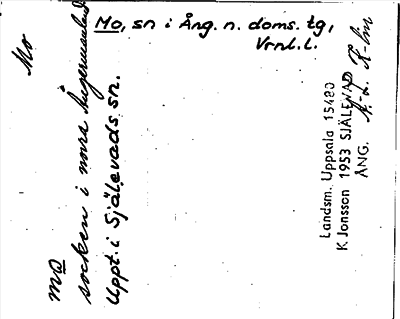 Mo, sn i Ång. n. doms. tg,
Vrnl. l.
Mo
mo
socken i norra Ångermanland
Uppt. i Själevads sn.
Landsm. Uppsala 15480
K Jonsson 1953 SJÄLEVAD
ÅNG.